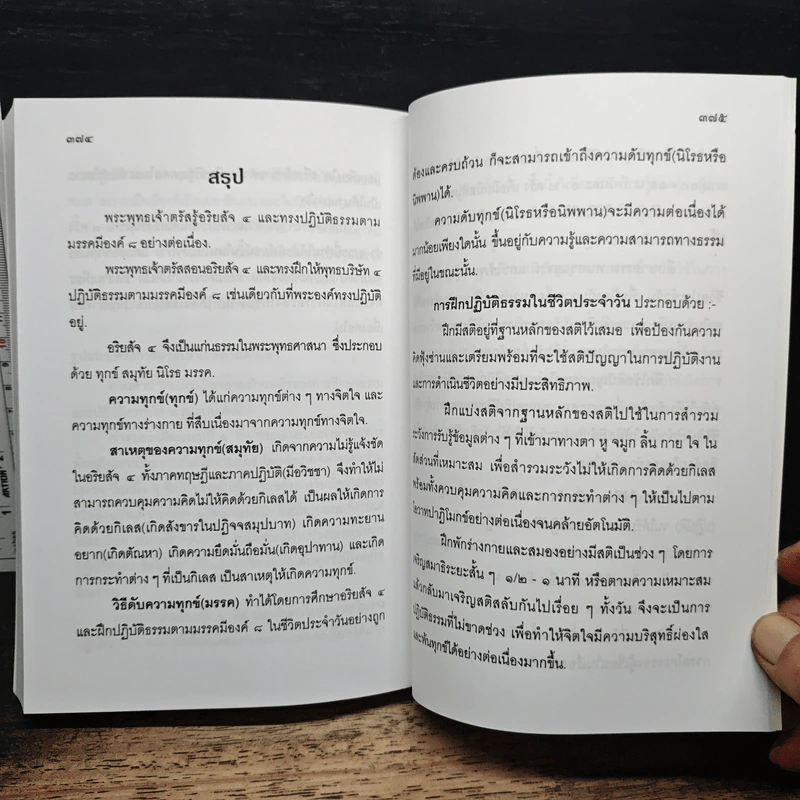 ๓๗๔
สรุป
พระพุทธเจ้าตรัสรู้อริยสัจ ๔ และทรงปฏิบัติธรรมตาม
มรรคมีองค์ ๘ อย่างต่อเนื่อง.
พระพุทธเจ้าตรัสสอนอริยสัจ ๔ และทรงฝึกให้พุทธบริษัท ๔
ปฏิบัติธรรมตามมรรคมีองค์ ๘ เช่นเดียวกับที่พระองค์ทรงปฏิบัติ
อยู่.
อริยสัจ ๔ จึงเป็นแก่นธรรมในพระพุทธศาสนา ซึ่งประกอบ
ด้วย ทุกข์ สมุทัย นิโรธ มรรค.
ความทุกข์(ทุกข์) ได้แก่ความทุกข์ต่าง ๆ ทางจิตใจ และ
ความทุกข์ทางร่างกาย ที่สืบเนื่องมาจากความทุกข์ทางจิตใจ.
สาเหตุของความทุกข์(สมุทัย) เกิดจากความไม่รู้แจ้งชัด
ในอริยสัจ ๔ ทั้งภาคทฤษฎีและภาคปฏิบัติ(มีอวิชชา) จึงทำให้ไม่
สามารถควบคุมความคิดไม่ให้คิดด้วยกิเลสได้ เป็นผลให้เกิดการ
คิดด้วยกิเลส(เกิดสังขารในปฏิจจสมุปบาท) เกิดความทะยาน
อยาก(เกิดตัณหา) เกิดความยึดมั่นถือมั่น(เกิดอุปาทาน) และเกิด
การกระทำต่าง ๆ ที่เป็นกิเลส เป็นสาเหตุให้เกิดความทุกข์.
วิธีดับความทุกข์(มรรค) ทำได้โดยการศึกษาอริยสัจ ๔
และฝึกปฏิบัติธรรมตามมรรคมีองค์ ๘ ในชีวิตประจำวันอย่างถูก
๓๗๕
ต้องและครบถ้วน ก็จะสามารถเข้าถึงความดับทุกข์(นิโรธหรือ
นิพพาน)ได้.
ความดับทุกข์(นิโรธหรือนิพพาน)จะมีความต่อเนื่องได้
มากน้อยเพียงใดนั้น ขึ้นอยู่กับความรู้และความสามารถทางธรรม
ที่มีอยู่ในขณะนั้น.
การฝึกปฏิบัติธรรมในชีวิตประจำวัน ประกอบด้วย :-
ฝึกมีสติอยู่ที่ฐานหลักของสติไว้เสมอ เพื่อป้องกันความ
คิดฟุ้งซ่านและเตรียมพร้อมที่จะใช้สติปัญญาในการปฏิบัติงาน
และการดำเนินชีวิตอย่างมีประสิทธิภาพ.
ฝึกแบ่งสติจากฐานหลักของสติไปใช้ในการสำรวม
ระวังการรับรู้ข้อมูลต่าง ๆ ที่เข้ามาทางตา หู จมูก ลิ้น กาย ใจ ใน
สัดส่วนที่เหมาะสม เพื่อสำรวมระวังไม่ให้เกิดการคิดด้วยกิเลส
พร้อมทั้งควบคุมความคิดและการกระทำต่าง ๆ ให้เป็นไปตาม
โอวาทปาฏิโมกข์อย่างต่อเนื่องจนคล้ายอัตโนมัติ.
ฝึกพักร่างกายและสมองอย่างมีสติเป็นช่วง ๆ โดยการ
เจริญสมาธิระยะสั้น ๆ ๑/๒ - ๑ นาที หรือตามความเหมาะสม
แล้วกลับมาเจริญสติสลับกันไปเรื่อย ๆ ทั้งวัน จึงจะเป็นการ
ปฏิบัติธรรมที่ไม่ขาดช่วง เพื่อทำให้จิตใจมีความบริสุทธิ์ผ่องใส
และพ้นทุกข์ได้อย่างต่อเนื่องมากขึ้น.